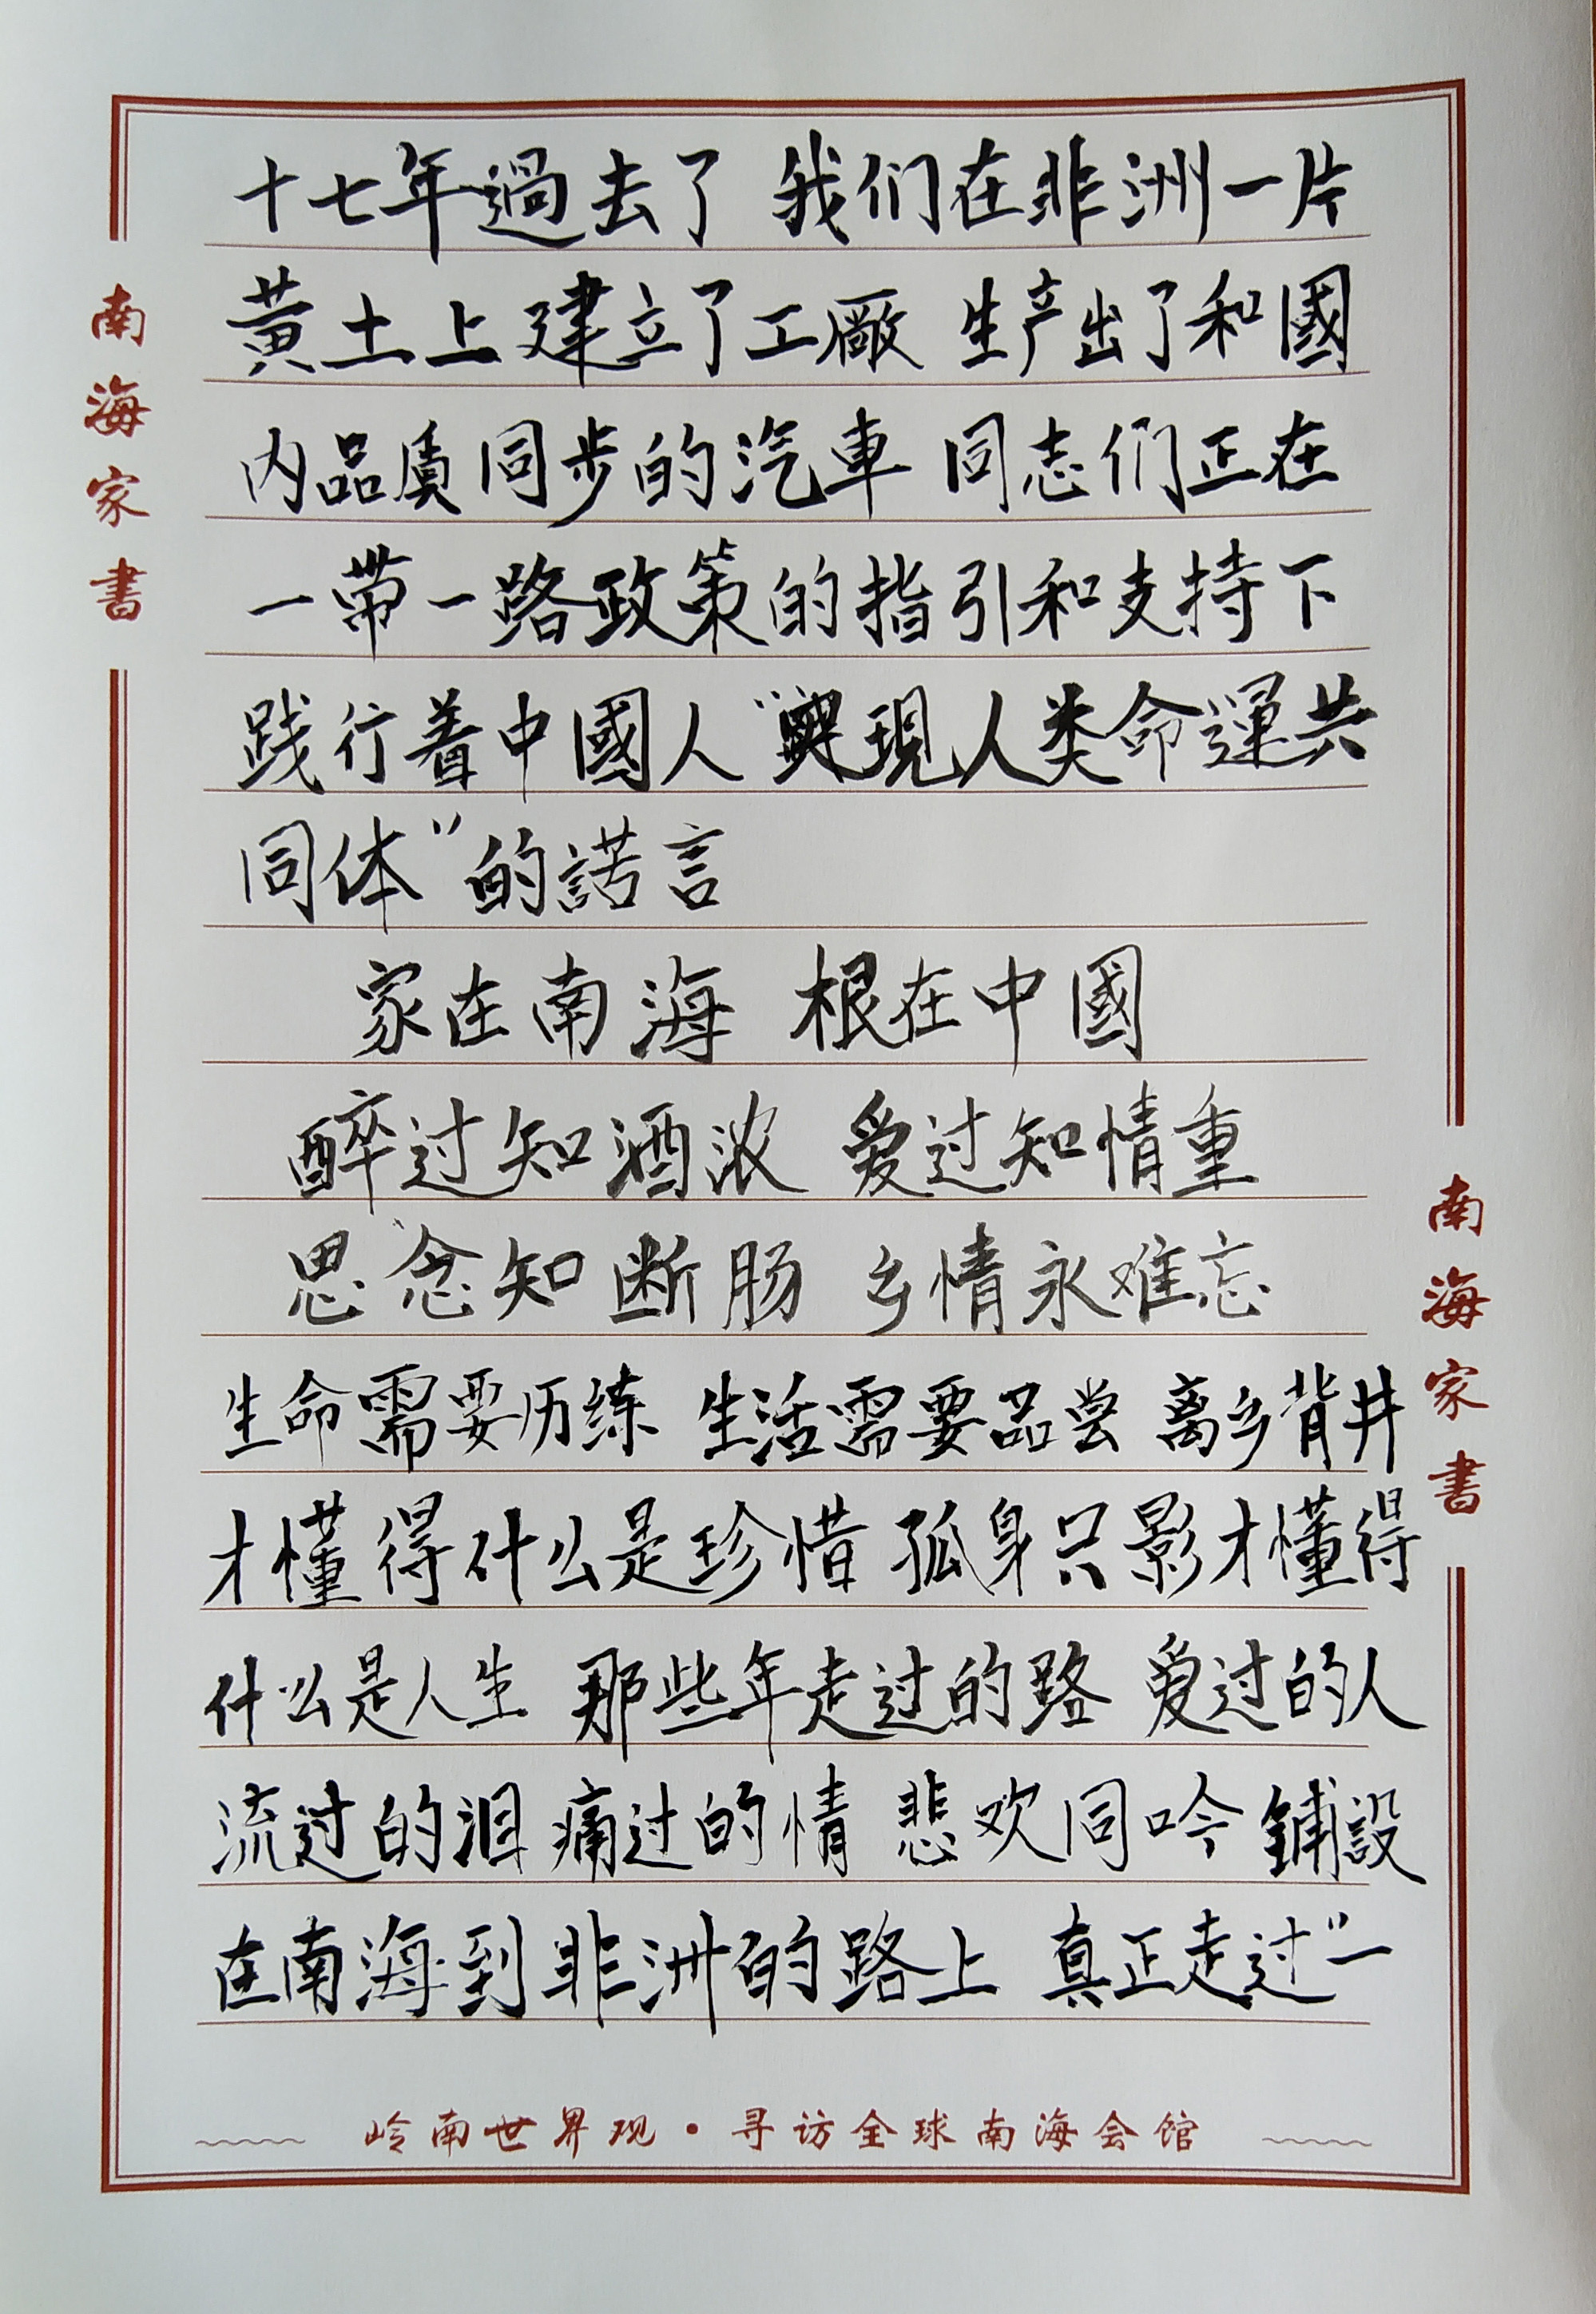 十七年過去了 我们在非洲一片
黄土上建立了工廠 生产出了和國
内品質同步的汽車 同志们正在
一带一路政策的指引和支持下
践行着中國人“實現人类命運共
同体”的諾言
家在南海 根在中國
醉过知酒浓 爱过知情重
思念知断肠 乡情永难忘
生命需要历练 生活需要品尝 离乡背井
才懂得什么是珍惜 孤身只影才懂得
什么是人生 那些年走过的路 爱过的人
流过的泪 痛过的情 悲欢同吟 鋪設
在南海到非洲的路上 真正走过“一
南海家書
南海家書
岭南世界观·寻访全球南海会馆